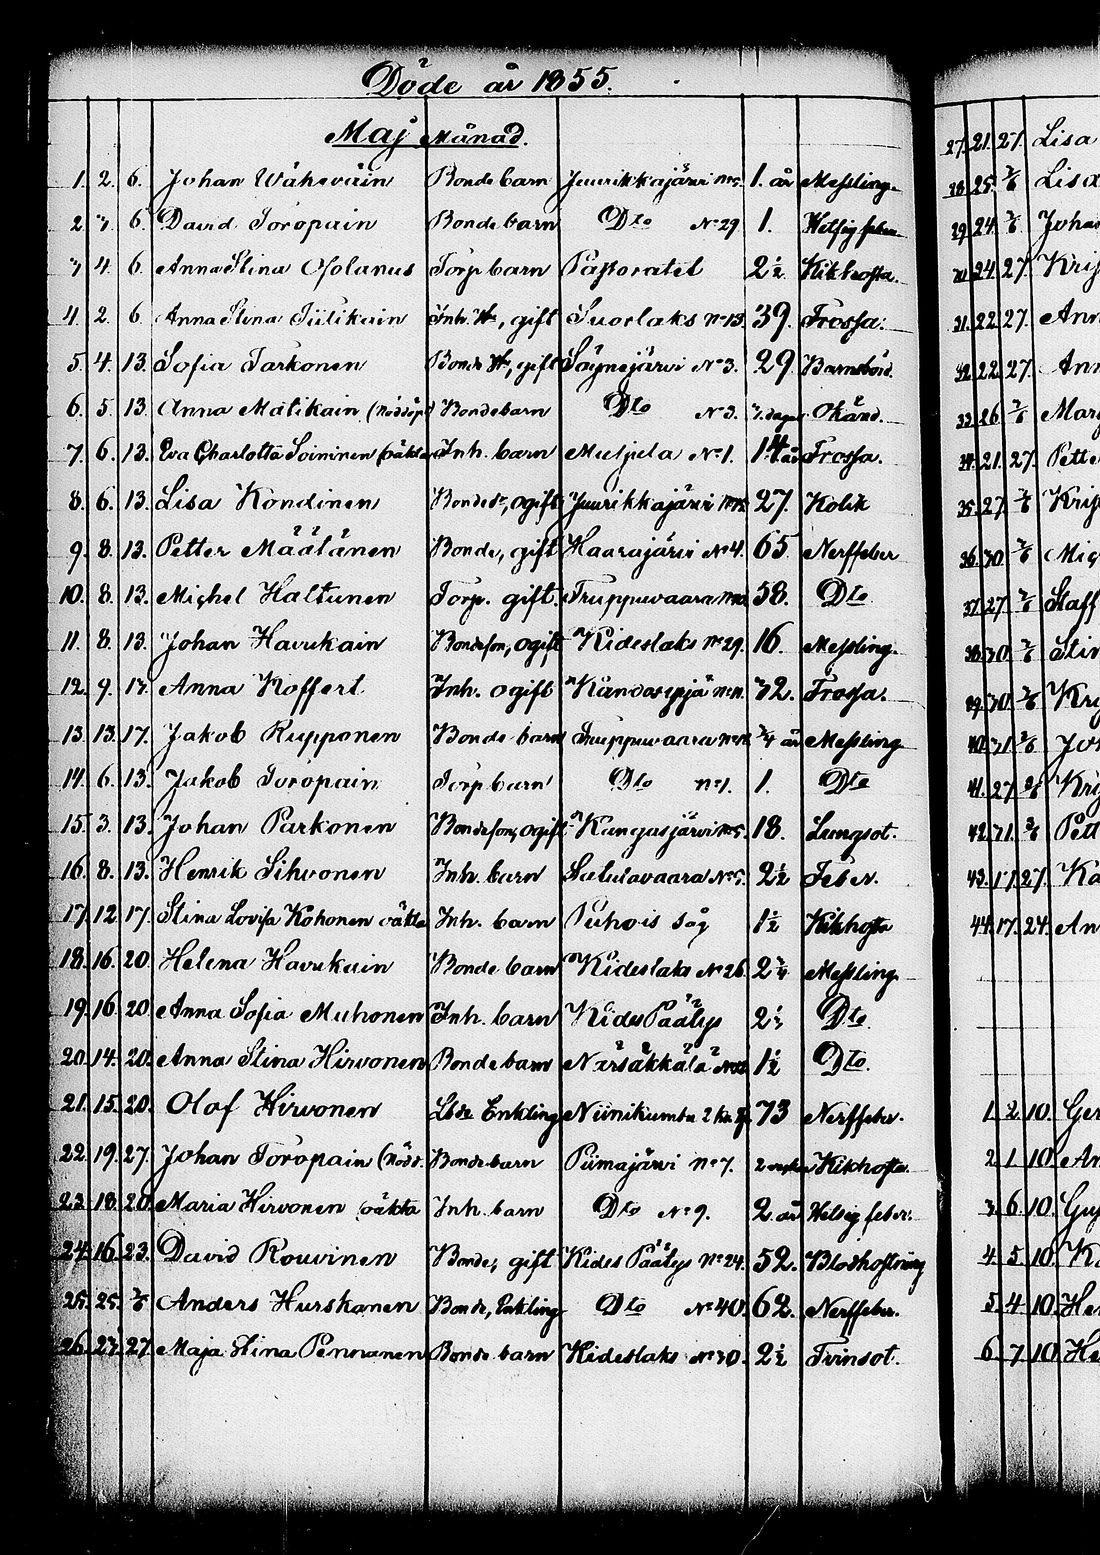 Döde år 1855.
Maj Månad.
1. 2. 6. Johan Wäheväin Bonde barn Juurikkajärvi No 5. 1. år Messling.
2 3. 6. David Toropain Bonde barn Dto No 29 1. Hetsig feber
3 4. 6. Anna Stina Ofolanus Torp barn Pastoratet 2½ Kikhosta.
4. 2. 6. Anna Stina Tiilikain Inh. H., gift Suorlaks No 13. 39. Trossa.
5. 4. 13. Sofia Tarkonen Bonde H., gift Säynejärvi No 3. 29 Barnsbörd.
6. 5. 13. Anna Matikain (nöddöpt) Bondebarn Dto No 3. 3. dagar Okänd.
7. 6. 13. Eva Charlotta Soininen (oäkta Inh. barn Muljula No 1. 14 år Trossa.
8. 6. 13. Lisa Kondinen Bonded., ogift Juurikkajärvi 27. Kolik
9. 8. 13. Petter Määtänen Bonde, gift Haarajärvi No 4. 65. Nerffeber
10. 8. 13. Michel Haltunen Torp. gift. Truppuvaara 58. Dto
11. 8. 13. Johan Havukain Bondeson, ogift Kideslaks No 29. 16 Messling.
12. 9. 13. Anna Koffert Inh. ogift 32. Trossa.
13. 13. 17. Jakob Rupponen Bonde barn Truppuvaara ¾ år Messling
14. 6. 13. Jakob Toropain Torp barn Dto No 1. 1. Dto
15. 3. 13. Johan Parkonen Bondeson, ogift Kangasjärvi No 5. 18. Lungsot.
16. 8. 13. Henrik Sihvonen Inh. barn Satulavaara No 5. 2½ Feber.
17. 12. 17. Stina Lovisa Kohonen oäkta Inh. barn Puhois såg 1½ Kikhosta
18. 16. 20 Helena Havukain Bonde barn Kideslaks No 26. 2¾ Messling
19. 16. 20. Anna Sofia Muhonen Inh. barn Kides Päätye 2⅓ Dto
20. 14. 20. Anna Stina Hirvonen Bonde barn Närsäkkälä 1½ Dto.
21. 15. 20. Olof Hirvonen Lösde Enkling Niinikumbu 73 Nerffeber.
22. 19. 27. Johan Toropain (nödd. Bonde barn Piimajärvi No 7. 2 Kikhosta.
23. 18. 20. Maria Hirvonen oäkta Inh. barn Dto No 9. 2 år Hetsig feber.
24. 16. 23. David Rouvinen Bonde, gift Kides Päätye No 24. 52. Blodhostning
25. 25. 3/6 Anders Hurskanen Bonde, Enkling Dto No 40. 62. Nerffeber.
26. 23. 27. Maja Stina Pennanen Bonde barn Kideslaks No 30. 2½ Tvinsot.
27. 21. 27. Lisa
28. 25. 3/6 Lisa
29. 24. 3/6 Joha
30. 24. 27. Kris
31. 22. 27. Ann
32. 22. 27. Ann
33. 26. 3/6 Mar
34. 21. 27. Pette
35. 27. 3/6 Kris
36. 30. 3/6 Mich
37. 27. 3/6 Staff
38. 30. 3/6 Stin
39. 30. 3/6 Kri
40. 31. 3/6 Joh
41. 27. 3/6 Kri
42. 31. 3/6 Pett
43. 17. 27. Ka
44. 17. 24. An
1. 2. 10. Ger
2. 1. 10. An
3. 6. 10. Gus
4. 5. 10. Ka
5. 4. 10. He
6. 7. 10. He